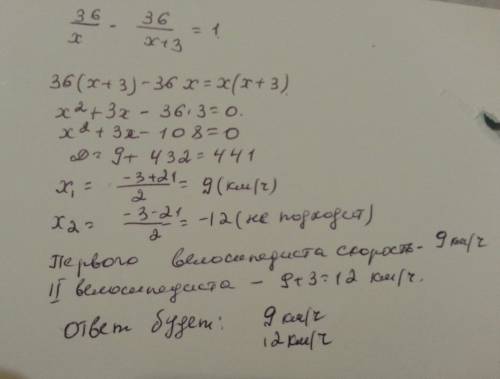 36/x - 36/x+3 = 1
36(x+3)-36x=x(x+3)
x²+3x-36·3=0.
x²+3x-108=0
D=9+432=441
x₁= -3+21/2 = 9(км/ч)
x₂= -3-21/2 = -12(не подходит)
Первого велосипедиста скорость- 9км/ч
II велосипедиста - 9+3=12 км/ч.
Ответ будет: 9 км/ч
12км/ч